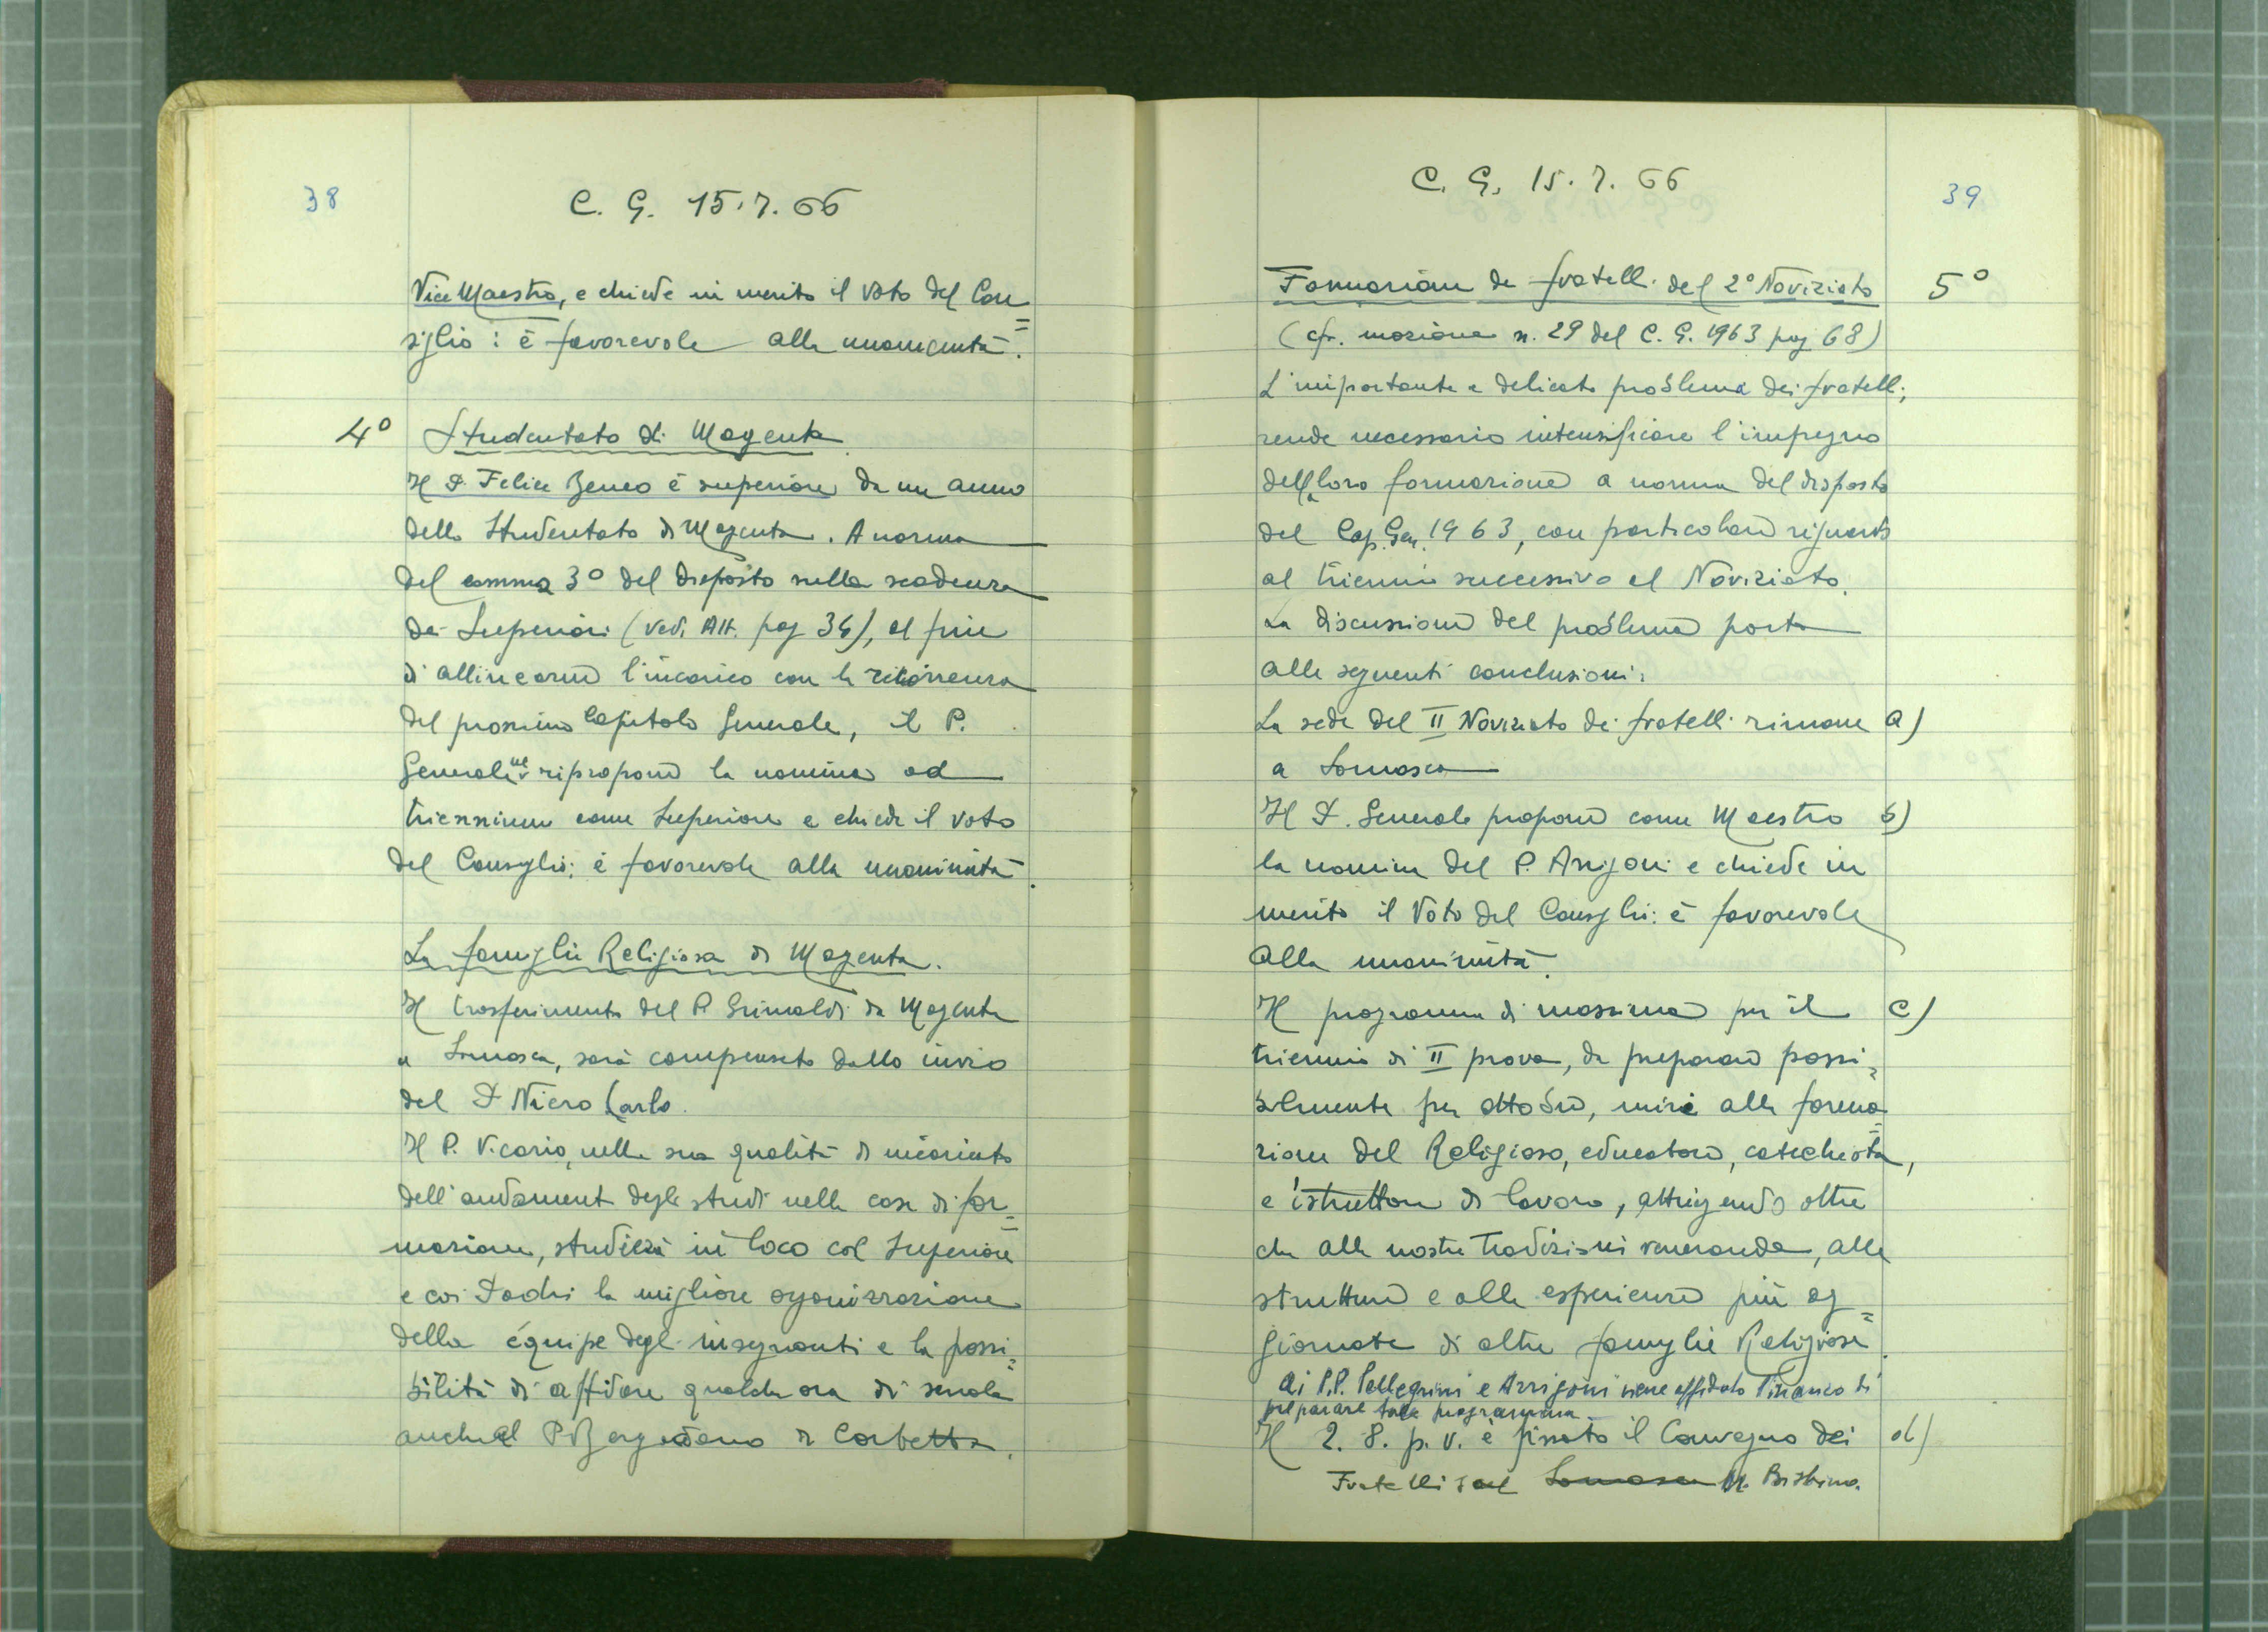 38
C. G. 15.7.66
Vice Maestro, e chiede in merito il voto del Con=
siglio: è favorevole alla unanimità.
4° Studentato di Magenta.
Il P. Felice Beneo è superiore da un anno
dello Studentato di Magenta. A norma
del comma 3° del disposto sulla scadenza
dei Superiori (vedi Att. pag 34), al fine
di allineare l'incarico con la ricorrenza
del prossimo Capitolo Generale, il P.
Generale ne ripropone la nomina ad
triennium come Superiore e chiede il voto
del Consiglio: è favorevole alla unanimità.
La famiglia Religiosa di Magenta.
Il trasferimento del P. Grimaldi da Magenta
a Somasca, sarà compensato dallo invio
del P. Nicro Carlo.
Il P. Vicario, nella sua qualità di incaricato
dell'andamento degli studi nelle case di for=
mazione, studierà in loco col Superiore
e coi Padri la migliore organizzazione
della équipe degli insegnanti e la possi=
bilità di affidare qualche ora di scuola
anche al P. Bergadano di Corbetta.
C. G. 15.7.66
39
Formazione dei fratelli del 2° Noviziato 5°
(cfr. mozione n. 29 del C. G. 1963 pag 68)
L'importante e delicato problema dei fratelli,
rende necessario intensificare l'impegno
della loro formazione a norma del disposto
del Cap. Gen. 1963, con particolare riguardo
al triennio successivo al Noviziato.
La discussione del problema porta
alle seguenti conclusioni:
La sede del II Noviziato dei fratelli rimane a)
a Somasca
Il P. Generale propone come Maestro b)
la nomina del P. Arrigoni e chiede in
merito il Voto del Consiglio: è favorevole
alla unanimità.
Il programma di massima per il c)
triennio di II prova, da preparare possi=
bilmente per ottobre, miri alla forma=
zione del Religioso, educatore, catechista,
e istruttore di lavoro, attingendo oltre
che alle nostre tradizioni venerande, alle
strutture e alle esperienze più ag=
giornate di altre famiglie Religiose.
Ai P.P. Pellegrini e Arrigoni viene affidato l'incarico di
preparare tale programma.
Il 2. 8. p. v. è fissato il Convegno dei d)
Fratelli Somasca